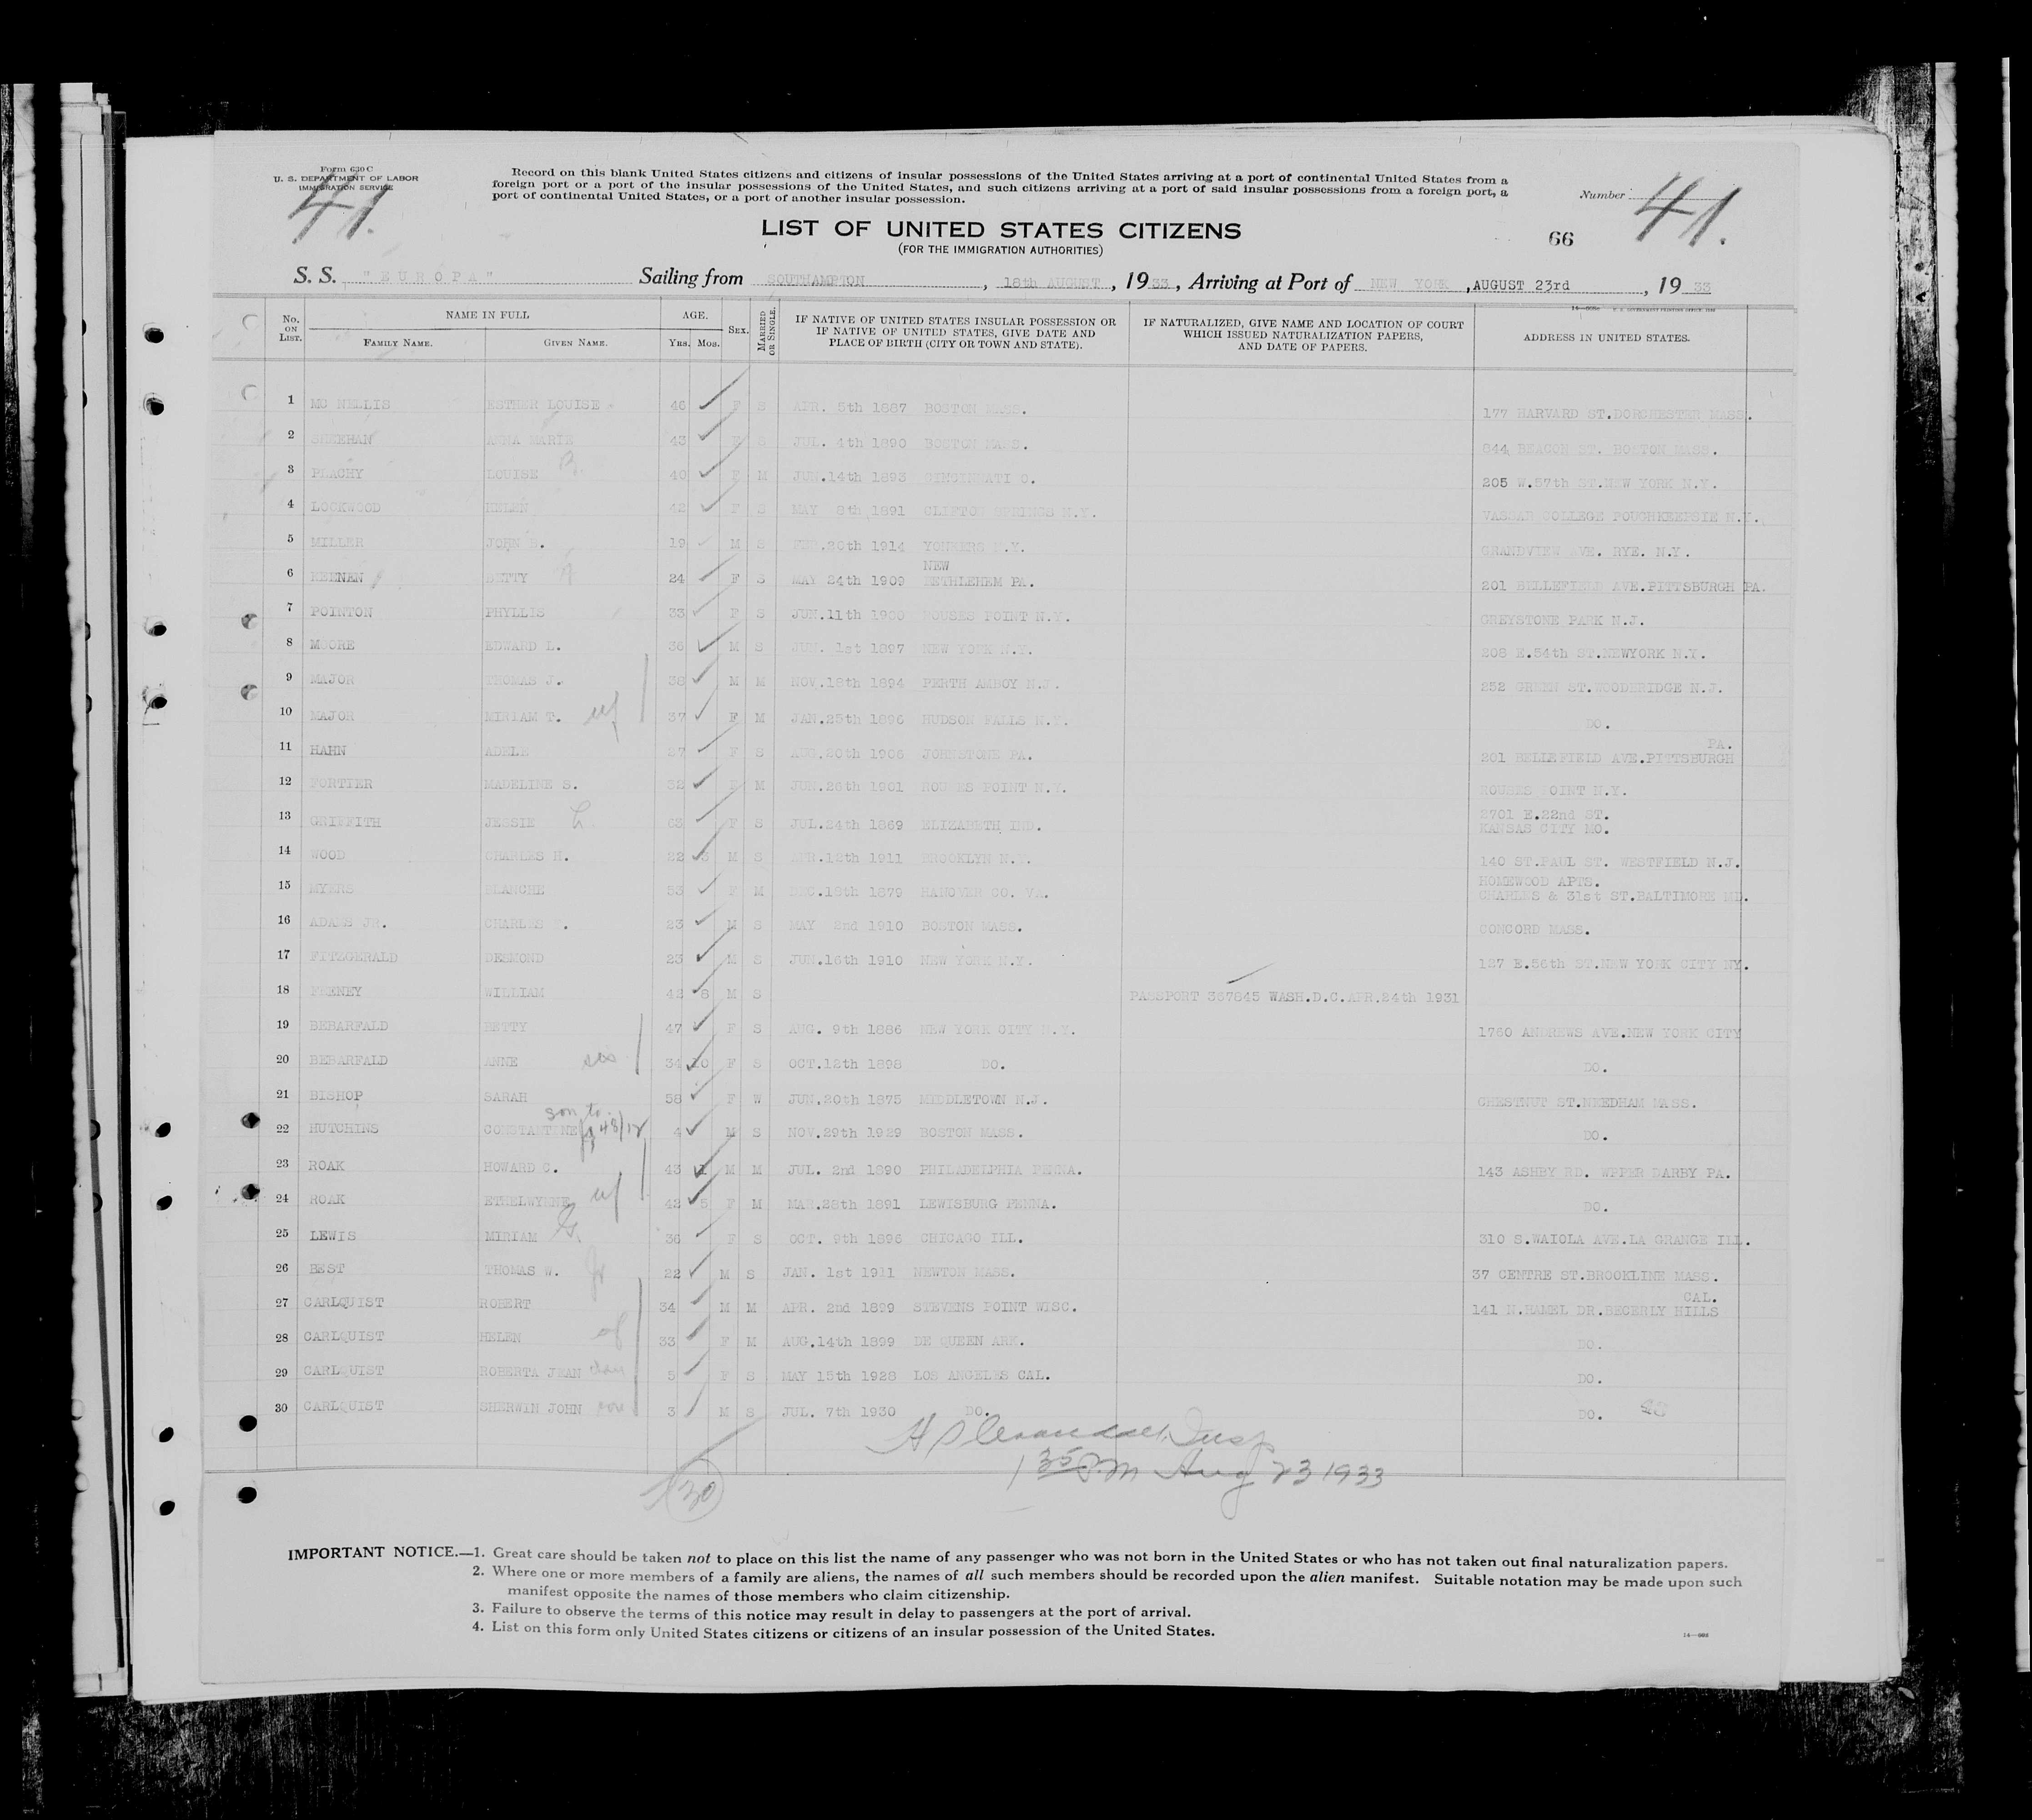 Form 630 C
U. S. DEPARTMENT OF LABOR
IMMIGRATION SERVICE
41.
Record on this blank United States citizens and citizens of insular possessions of the United States arriving at a port of continental United States from a
foreign port or a port of the insular possessions of the United States, and such citizens arriving at a port of said insular possessions from a foreign port, a
port of continental United States, or a port of another insular possession.
Number 41.
LIST OF UNITED STATES CITIZENS
(FOR THE IMMIGRATION AUTHORITIES)
66
S. S. "EUROPA" Sailing from SOUTHAMPTON, 18th AUGUST, 1933, Arriving at Port of NEW YORK, AUGUST 23rd, 1933
No. ON LIST. NAME IN FULL FAMILY NAME. GIVEN NAME. AGE. Yrs. Mos. SEX. MARRIED OR SINGLE. IF NATIVE OF UNITED STATES INSULAR POSSESSION OR IF NATIVE OF UNITED STATES, GIVE DATE AND PLACE OF BIRTH (CITY OR TOWN AND STATE). IF NATURALIZED, GIVE NAME AND LOCATION OF COURT WHICH ISSUED NATURALIZATION PAPERS, AND DATE OF PAPERS. ADDRESS IN UNITED STATES.
1 MC NELLIS ESTHER LOUISE 46 F S APR. 5th 1887 BOSTON MASS. 177 HARVARD ST.DORCHESTER MASS.
2 SHEEHAN ANNA MARIE 43 F S JUL. 4th 1890 BOSTON MASS. 844 BEACON ST. BOSTON MASS.
3 PLACHY LOUISE B. 40 F M JUN.14th 1893 CINCINNATI O. 205 W.57th ST.NEW YORK N.Y.
4 LOCKWOOD HELEN 42 F S MAY 8th 1891 CLIFTON SPRINGS N.Y. VASSAR COLLEGE POUGHKEEPSIE N.Y.
5 MILLER JOHN B. 19 M S FEB.20th 1914 YONKERS N.Y. GRANDVIEW AVE. RYE. N.Y.
6 KEENAN BETTY 24 F S MAY 24th 1909 NEW BETHLEHEM PA. 201 BELLEFIELD AVE.PITTSBURGH PA.
7 POINTON PHYLLIS 33 F S JUN.11th 1900 ROUSES POINT N.Y. GREYSTONE PARK N.J.
8 MOORE EDWARD L. 36 M S JUN. 1st 1897 NEW YORK N.Y. 208 E.54th ST.NEWYORK N.Y.
9 MAJOR THOMAS J. 38 M M NOV.18th 1894 PERTH AMBOY N.J. 252 GREEN ST.WOODBRIDGE N.J.
10 MAJOR MIRIAM T. wf 37 F M JAN.25th 1896 HUDSON FALLS N.Y. DO.
11 HAHN ADELE 27 F S AUG.20th 1906 JOHNSTONE PA. 201 BELLEFIELD AVE.PITTSBURGH PA.
12 FORTIER MADELINE S. 32 F M JUN.26th 1901 ROUSES POINT N.Y. ROUSES POINT N.Y.
13 GRIFFITH JESSIE L. 63 F S JUL.24th 1869 ELIZABETH IND. 2701 E.22nd ST. KANSAS CITY MO.
14 WOOD CHARLES H. 22 3 M S APR.12th 1911 BROOKLYN N.Y. 140 ST.PAUL ST. WESTFIELD N.J.
15 MYERS BLANCHE 53 F M DEC.18th 1879 HANOVER CO. VA. HOMEWOOD APTS. CHARLES & 31st ST.BALTIMORE MD.
16 ADAMS JR. CHARLES 23 M S MAY 2nd 1910 BOSTON MASS. CONCORD MASS.
17 FITZGERALD DESMOND 23 M S JUN.16th 1910 NEW YORK N.Y. 127 E.56th ST.NEW YORK CITY NY.
18 FEENEY WILLIAM 42 8 M S PASSPORT 367845 WASH.D.C.APR.24th 1931
19 BEBARFALD BETTY 47 F S AUG. 9th 1886 NEW YORK CITY N.Y. 1760 ANDREWS AVE.NEW YORK CITY
20 BEBARFALD ANNE sis 34 10 F S OCT.12th 1898 DO. DO.
21 BISHOP SARAH 58 F W JUN.20th 1875 MIDDLETOWN N.J. CHESTNUT ST.NEEDHAM MASS.
22 HUTCHINS CONSTANTINE son to 43/12 4 M S NOV.29th 1929 BOSTON MASS. DO.
23 ROAK HOWARD C. 43 1 M M JUL. 2nd 1890 PHILADELPHIA PENNA. 143 ASHBY RD. WPPER DARBY PA.
24 ROAK ETHELWYNNE wf 42 5 F M MAR.28th 1891 LEWISBURG PENNA. DO.
25 LEWIS MIRIAM G. 36 F S OCT. 9th 1896 CHICAGO ILL. 310 S.WAIOLA AVE.LA GRANGE ILL.
26 BEST THOMAS W. Jr 22 M S JAN. 1st 1911 NEWTON MASS. 37 CENTRE ST.BROOKLINE MASS.
27 CARLQUIST ROBERT 34 M M APR. 2nd 1899 STEVENS POINT WISC. 141 N.HAMEL DR.BEGERLY HILLS CAL.
28 CARLQUIST HELEN wf 33 F M AUG.14th 1899 DE QUEEN ARK. DO.
29 CARLQUIST ROBERTA JEAN dau 5 F S MAY 15th 1928 LOS ANGELES CAL. DO.
30 CARLQUIST SHERWIN JOHN son 3 M S JUL. 7th 1930 DO. DO.
Insp
1 35 P.M Aug 23 1933
30
IMPORTANT NOTICE.—1. Great care should be taken not to place on this list the name of any passenger who was not born in the United States or who has not taken out final naturalization papers.
2. Where one or more members of a family are aliens, the names of all such members should be recorded upon the alien manifest. Suitable notation may be made upon such
manifest opposite the names of those members who claim citizenship.
3. Failure to observe the terms of this notice may result in delay to passengers at the port of arrival.
4. List on this form only United States citizens or citizens of an insular possession of the United States.